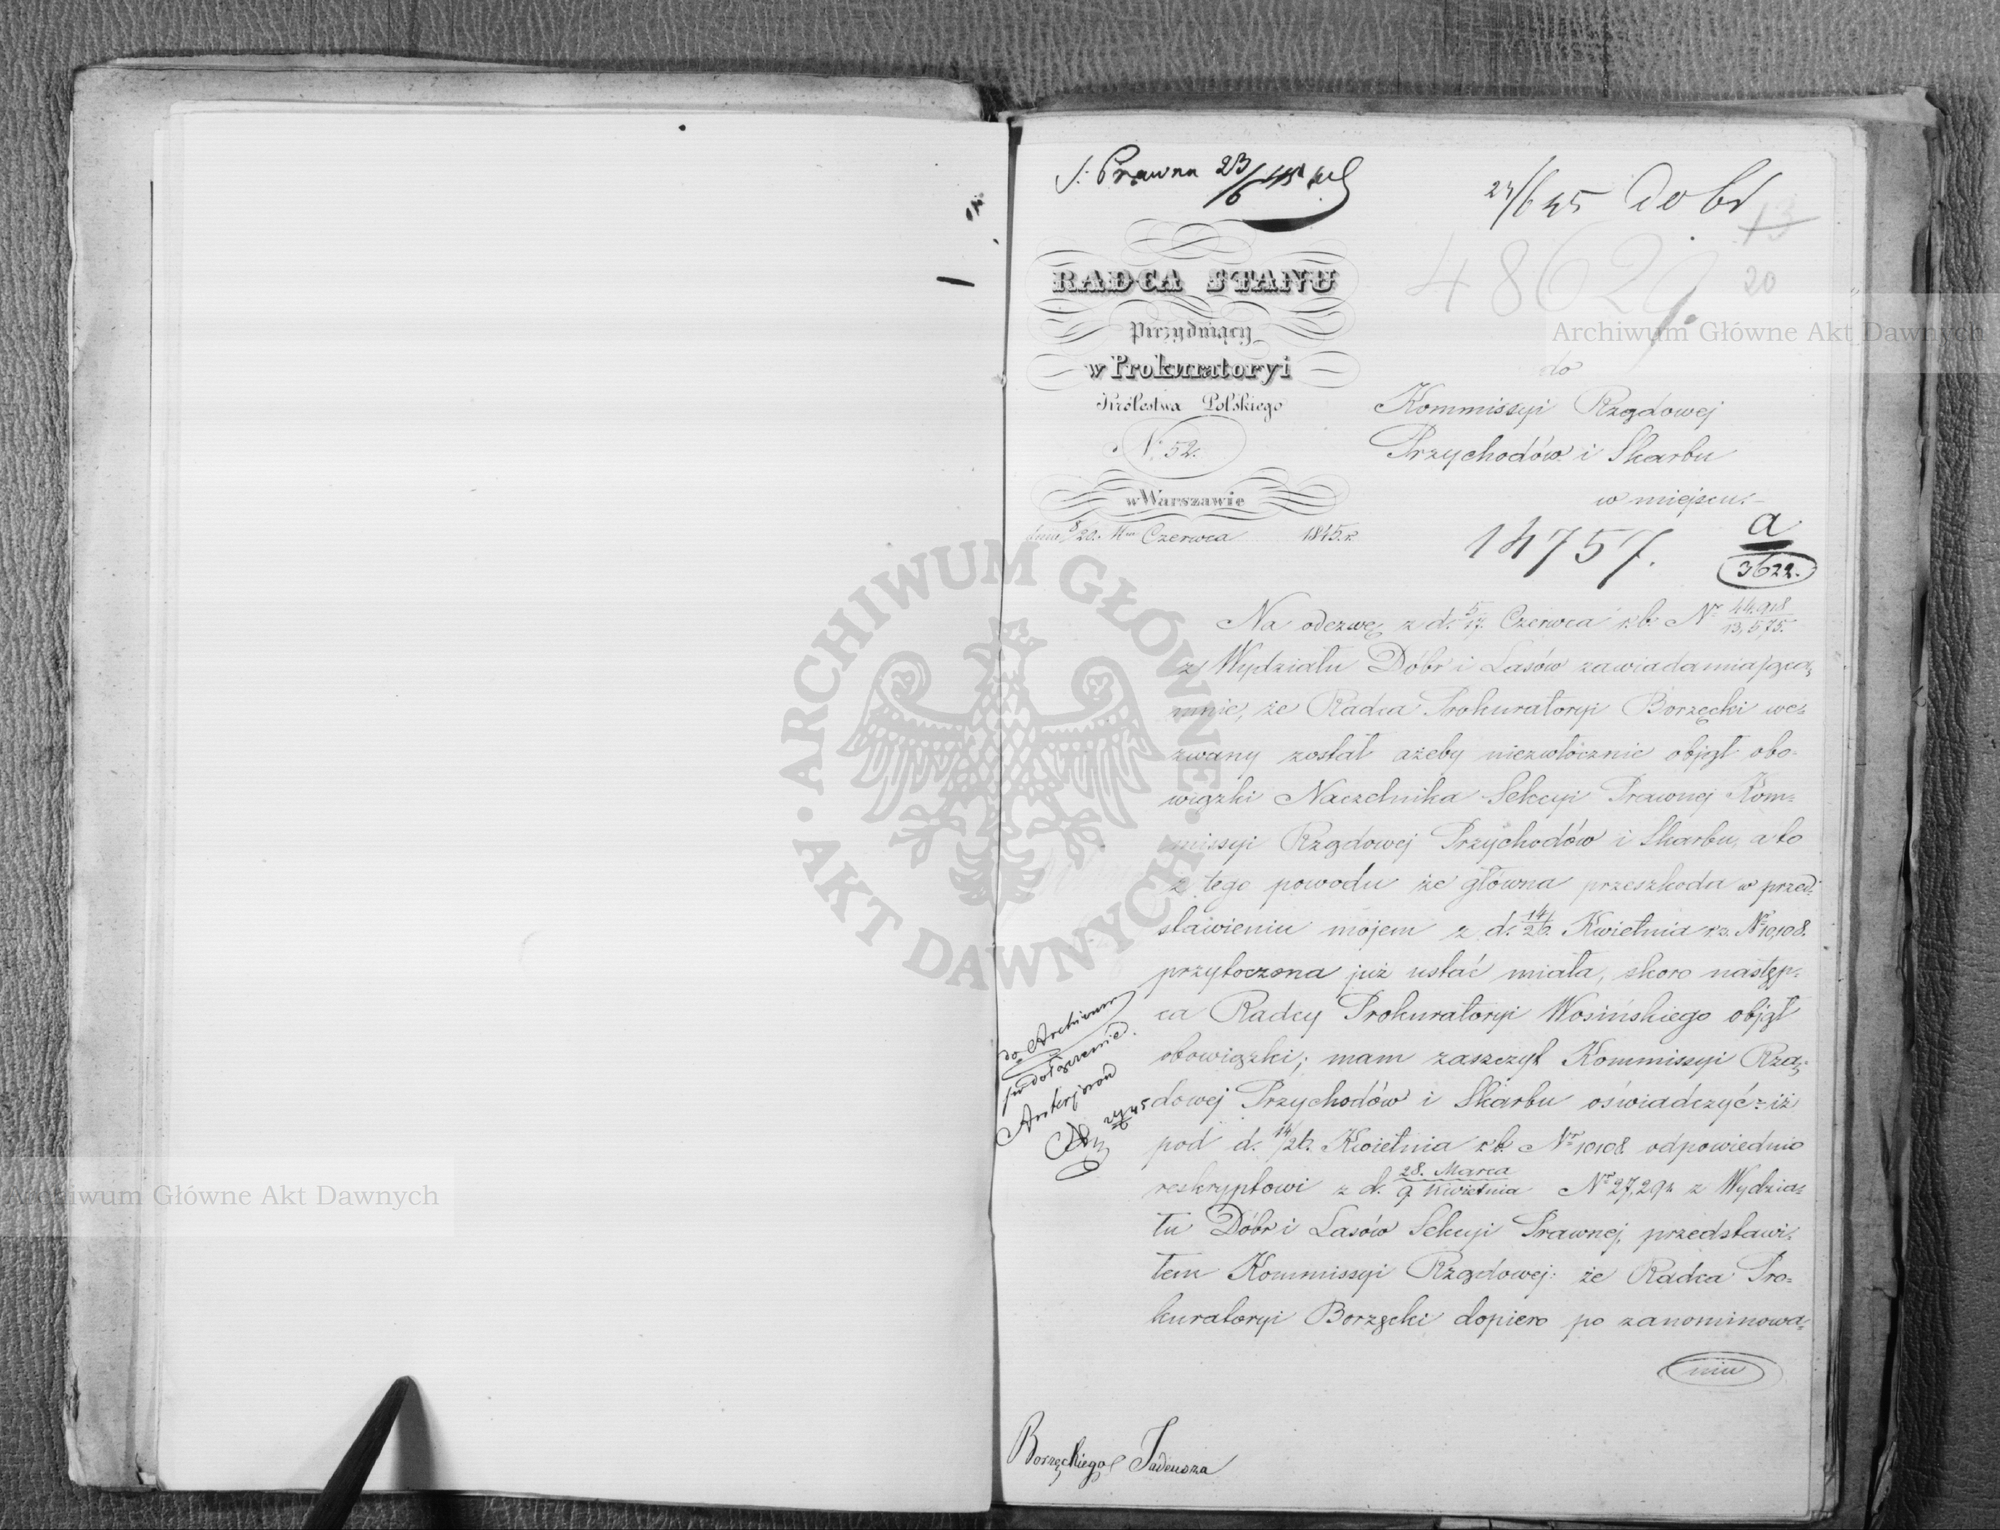 S. Prawna 23/6
24/6 45 Dobr
13
20
48629
RADCA STANU
Prezydujący
w Prokuratoryi
Królestwa Polskiego
N. 52.
w Warszawie
dnia 8/20. Czerwca 1845. r.
do
Kommissyi Rządowej
Przychodów i Skarbu
w miejscu.
14757.
a
3622.
Na odezwę z d. 5/17. Czerwca r. b. Nr 44,918/13,575.
z Wydziału Dóbr i Lasów zawiadamiającą
mnie, że Radca Prokuratoryi Borzęcki we-
zwany został ażeby niezwłócznie objął obo-
wiązki Naczelnika Sekcyi Prawnej Kom-
missyi Rządowej Przychodów i Skarbu, a to
z tego powodu że główna przeszkoda w przed-
stawieniu mojem z d. 14/26. Kwietnia r. b. Nr 10108.
przytoczona już ustać miała, skoro następ-
ca Radcy Prokuratoryi Wosińskiego objął
obowiązki; mam zaszczyt Kommissyi Rzą-
dowej Przychodów i Skarbu oświadczyć: iż
pod d. 14/26. Kwietnia r. b. Nr 10108 odpowiednio
reskryptowi z d. 28. Marca/9 Kwietnia Nr 27,294 z Wydzia-
łu Dóbr i Lasów Sekcyi Prawnej, przedstawi-
łem Kommissyi Rządowej: że Radca Pro-
kuratoryi Borzęcki dopiero po zanominowa-
niu
do Archiwum
24/6 45
Borzęckiego Tadeusza
ARCHIWUM GŁÓWNE AKT DAWNYCH
Archiwum Główne Akt Dawnych
Archiwum Główne Akt Dawnych